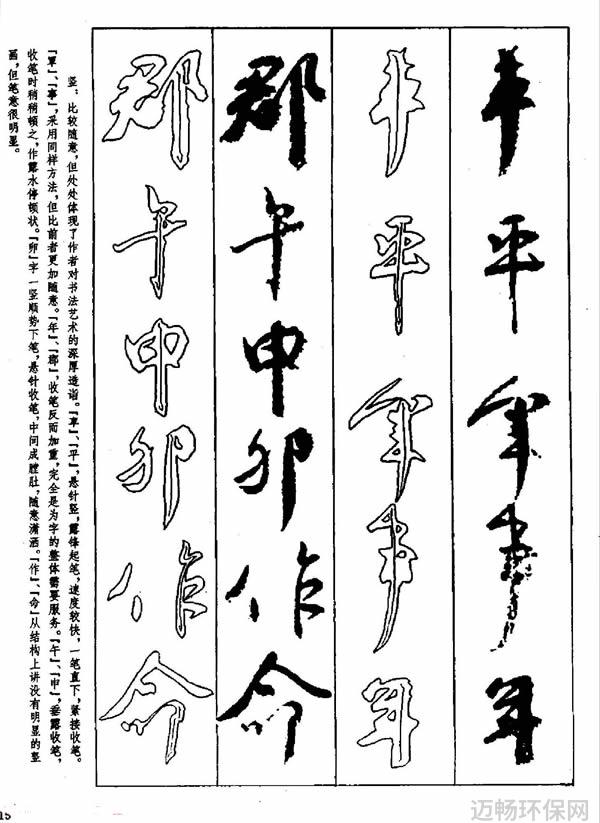 平
事
年
平
事
年
郡
午
申
卯
作
命
郡
午
申
卯
作
命
竖:比较随意,但处处体现了作者对书法艺术的深厚造诣。『』、『平』,悬针竖,露锋起笔,速度较快,一笔直下,紧接收笔。
『』、『事』,采用同样方法,但比前者更加随意。『年』、『郡』,收笔反而加重,完全是为字的整体需要服务。『午』、『申』,垂露收笔,
收笔时稍稍顿之,作露水停顿状。『卯』字一竖顺势下笔,悬针收笔,中间成膛肚,随意潇洒。『作』、『命』从结构上讲没有明显的竖
画,但笔意很明显。
15
迈畅环保网